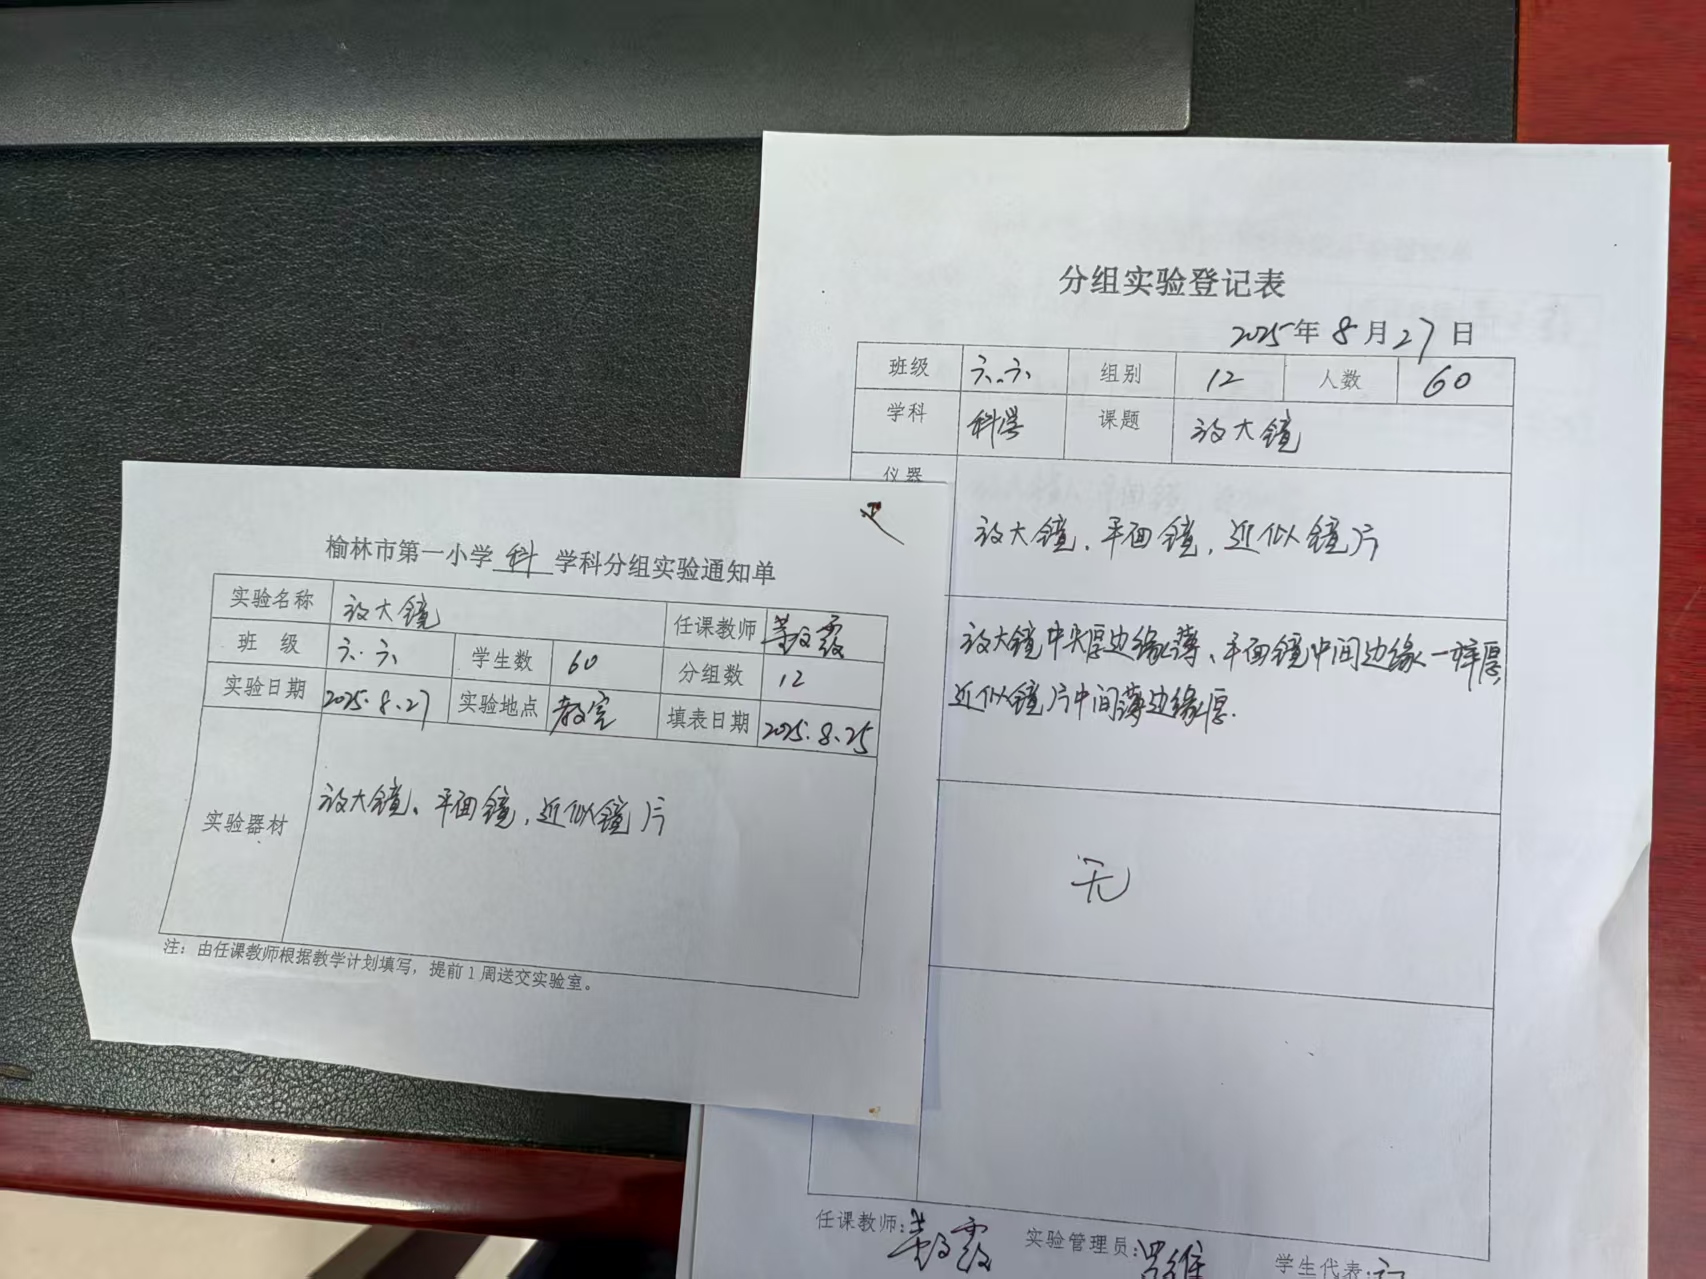 榆林市第一小学 科 学科分组实验通知单
实验名称 放大镜 任课教师
班 级 六.六 学生数 60 分组数 12
实验日期 2025.8.27 实验地点 教室 填表日期 2025.8.25
实验器材 放大镜、平面镜,近似镜片
注:由任课教师根据教学计划填写,提前1周送交实验室。
分组实验登记表
2025年8月27日
班级 六.六 组别 12 人数 60
学科 科学 课题 放大镜
仪器
放大镜、平面镜,近似镜片
放大镜中央厚边缘薄、平面镜中间边缘一样厚,
近似镜片中间薄边缘厚.
无
任课教师: 实验管理员: 学生代表: